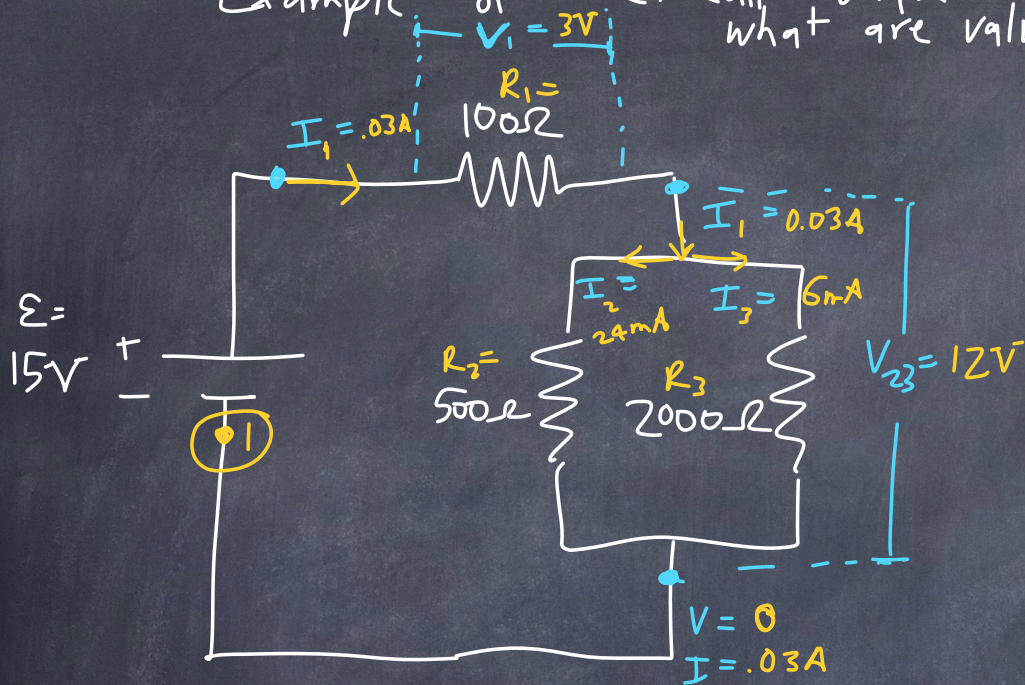 Example of
what are
V₁ = 3V
R₁ =
100Ω
I₁ = .03A
I₁ = 0.03A
I₂ =
24mA
I₃ = 6mA
ε =
15V
+
−
R₂ =
500Ω
R₃
2000Ω
V₂₃ = 12V
1
V = 0
I = .03A